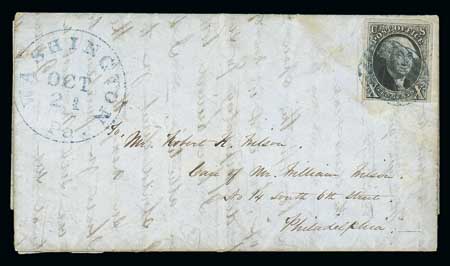 WASHINGTON
OCT
21
Pa.
POST OFFICE
X X
Mr. Robert K. Wilson
Care of Mr. William Wilson
No 14 South 6th street
Philadelphia